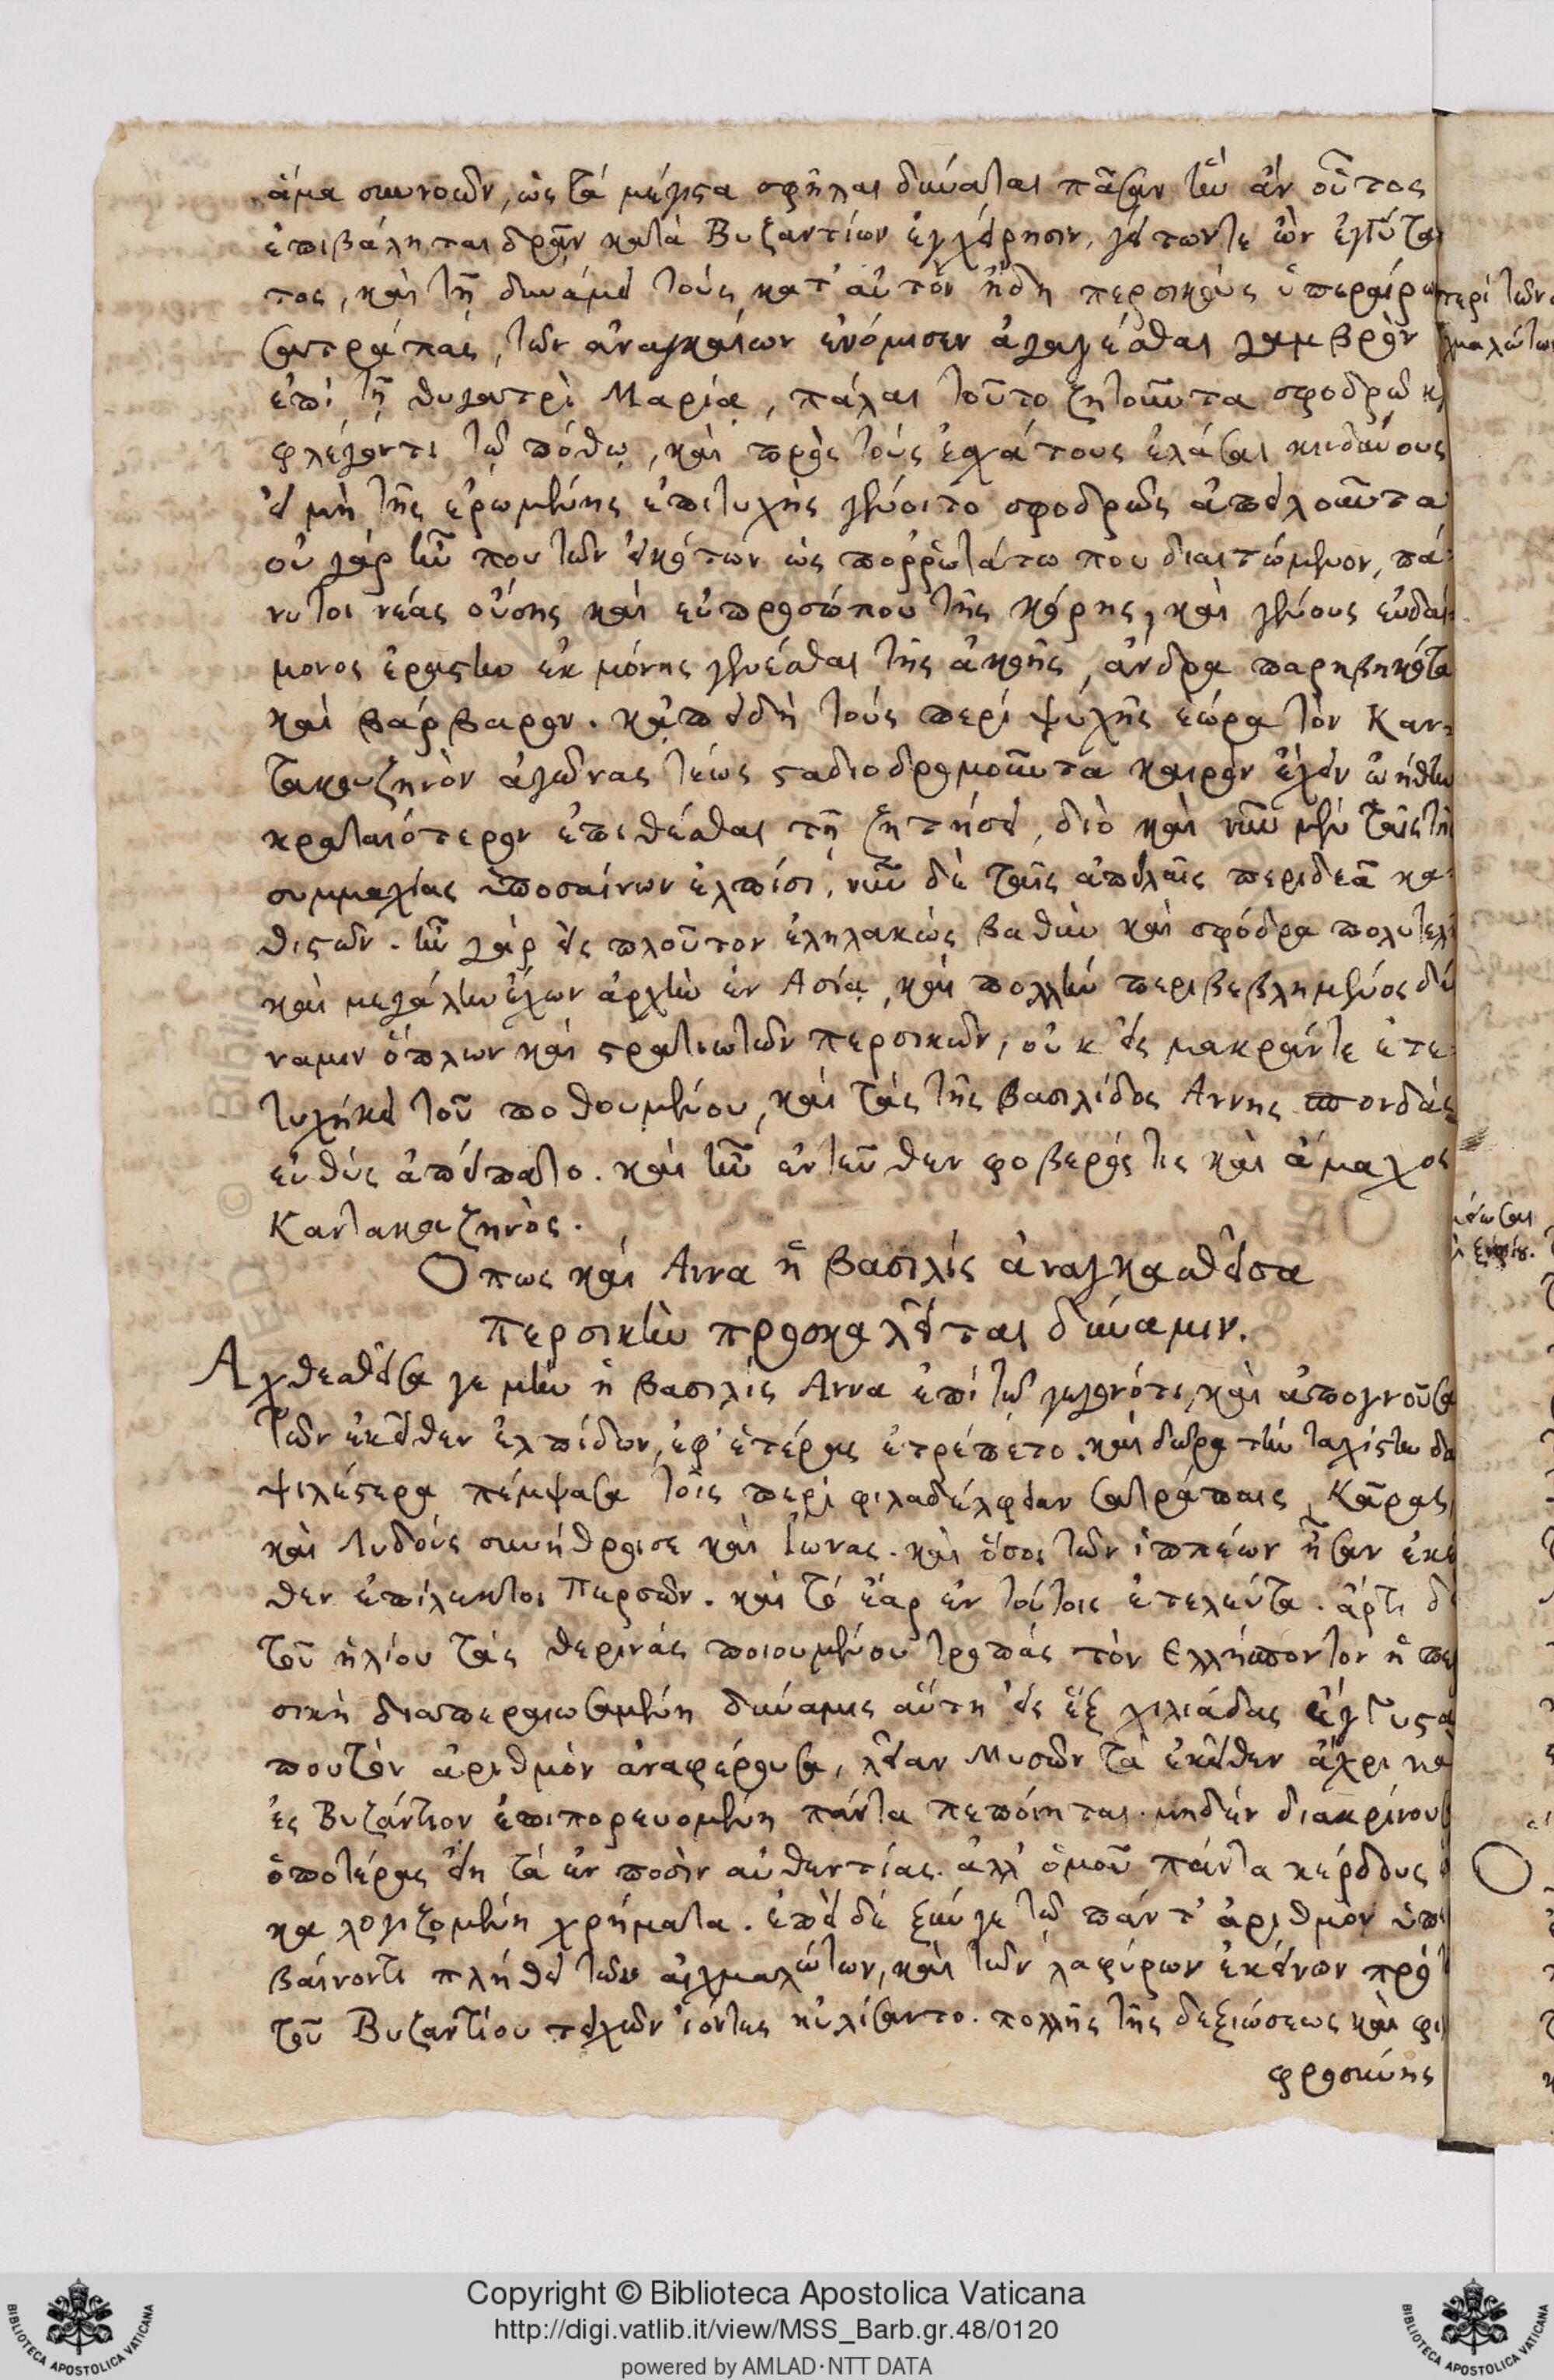 ἅμα συννοῶν, ὡς τὰ μέγιστα σφῆλαι δύναται πᾶσαν ἣν ἂν οὗτος
ἐπιβάληται δρᾶν κατὰ Βυζαντίων ἐγχείρησιν, γείτων τε ὢν ἐγγύτα
τος, καὶ τῇ δυνάμει τοὺς κατ' αὐτὸν ἤδη περσικοὺς ὑπεραίρων
σατράπας, τῶν ἀναγκαίων ἐνόμισεν ἀγαγέσθαι γαμβρὸν
ἐπὶ τῇ θυγατρὶ Μαρίᾳ, πάλαι τοῦτο ζητοῦντα σφοδρῷ κ
φλέγοντι τῷ πόθῳ, καὶ πρὸς τοὺς ἐσχάτους ἐλάσαι κινδύνους
εἰ μὴ τῆς ἐρωμένης ἐπιτυχὴς γένοιτο σφοδρῶς ἀπειλοῦντα
οὐ γὰρ ἦν που τῶν εἰκότων ὡς πορρωτάτω που διαιτώμενον, πά-
νυ τοι νέας οὔσης καὶ εὐπροσώπου τῆς κόρης, καὶ γένους εὐδαί-
μονος ἐραστὴν ἐκ μόνης γενέσθαι τῆς ἀκοῆς, ἄνδρα παρηβηκότα
καὶ βάρβαρον. κἀπειδὴ τοὺς περὶ ψυχῆς ἑώρα τὸν Καν-
τακουζηνὸν ἀγῶνας τέως σταδιοδρομοῦντα καιρὸν ἔχειν ᾠήθη
κραταιότερον ἐπιθέσθαι τῇ ζητήσει, διὸ καὶ νῦν μὲν ταῖς τῆς
συμμαχίας ὑποσαίνων ἐλπίσι, νῦν δὲ ταῖς ἀπειλαῖς περιδεᾶ κα-
θιστῶν. ἦν γὰρ εἰς πλοῦτον ἐληλακὼς βαθὺν καὶ σφόδρα πολυτελῆ
καὶ μεγάλην ἔχων ἀρχὴν ἐν Ασίᾳ, καὶ πολλὴν περιβεβλημένος δύ
ναμιν ὅπλων καὶ στρατιωτῶν περσικῶν, οὐκ εἰς μακράν τε ἐτε-
τυχήκει τοῦ ποθουμένου, καὶ τὰς τῆς βασιλίδος Αννης σπονδὰς
εὐθὺς ἀπείπατο. καὶ ἦν ἐντεῦθεν φοβερός τις καὶ ἄμαχος
Καντακουζηνὸς.
Οπως καὶ Αννα ἡ βασιλὶς ἀναγκασθεῖσα
περσικὴν προσκαλεῖται δύναμιν.
Αχθεσθεῖσα γε μὴν ἡ βασιλὶς Αννα ἐπὶ τῷ γεγονότι, καὶ ἀπογνοῦσα
τῶν ἐκεῖθεν ἐλπίδων, ἐφ' ἑτέρας ἐτρέπετο. καὶ δῶρα τὴν ταχίστην δα
ψιλέστερα πέμψασα τοῖς περὶ φιλαδέλφειαν σατράπαις, Κᾶρας,
καὶ Λυδοὺς συνήθροισε καὶ Ἴωνας. καὶ ὅσοι τῶν ἱππέων ἦσαν ἐκεῖ
θεν ἐπίλεκτοι Περσῶν. καὶ τὸ ἔαρ ἐν τούτοις ἐτελεύτα. ἄρτι δὲ
τοῦ ἡλίου τὰς θερινὰς ποιουμένου τροπὰς τὸν Ελλήσποντον ἡ πε
σικὴ διαπεραιωσαμένη δύναμις αὕτη εἰς ἓξ χιλιάδας ἔγγιστά
που τὸν ἀριθμὸν ἀναφέρουσα, λείαν Μυσῶν τὰ ἐκεῖθεν ἄχρι κα
ἐς Βυζάντιον ἐπιπορευομένη πάντα πεποίηται. μηδὲν διακρίνουσ
ὁποτέρας εἴη τὰ ἐν ποσὶν αὐθεντίας. ἀλλ' ὁμοῦ πάντα κέρδους
κα λογιζομένη χρήματα. ἐπεὶ δὲ ξύν γε τῷ πάντ' ἀριθμὸν ὑπε
βαίνοντι πλήθει τῶν αἰχμαλώτων, καὶ τῶν λαφύρων ἐκείνων πρὸ
τοῦ Βυζαντίου τειχῶν ἰόντες ηὐλίσαντο. πολλῆς τῆς δεξιώσεως καὶ φι
φροσύνης
περὶ τῶν
χμαλώτων
Copyright © Biblioteca Apostolica Vaticana
http://digi.vatlib.it/view/MSS_Barb.gr.48/0120
powered by AMLAD·NTT DATA
BIBLIOTECA APOSTOLICA VATICANA
BIBLIOTECA APOSTOLICA VATICANA